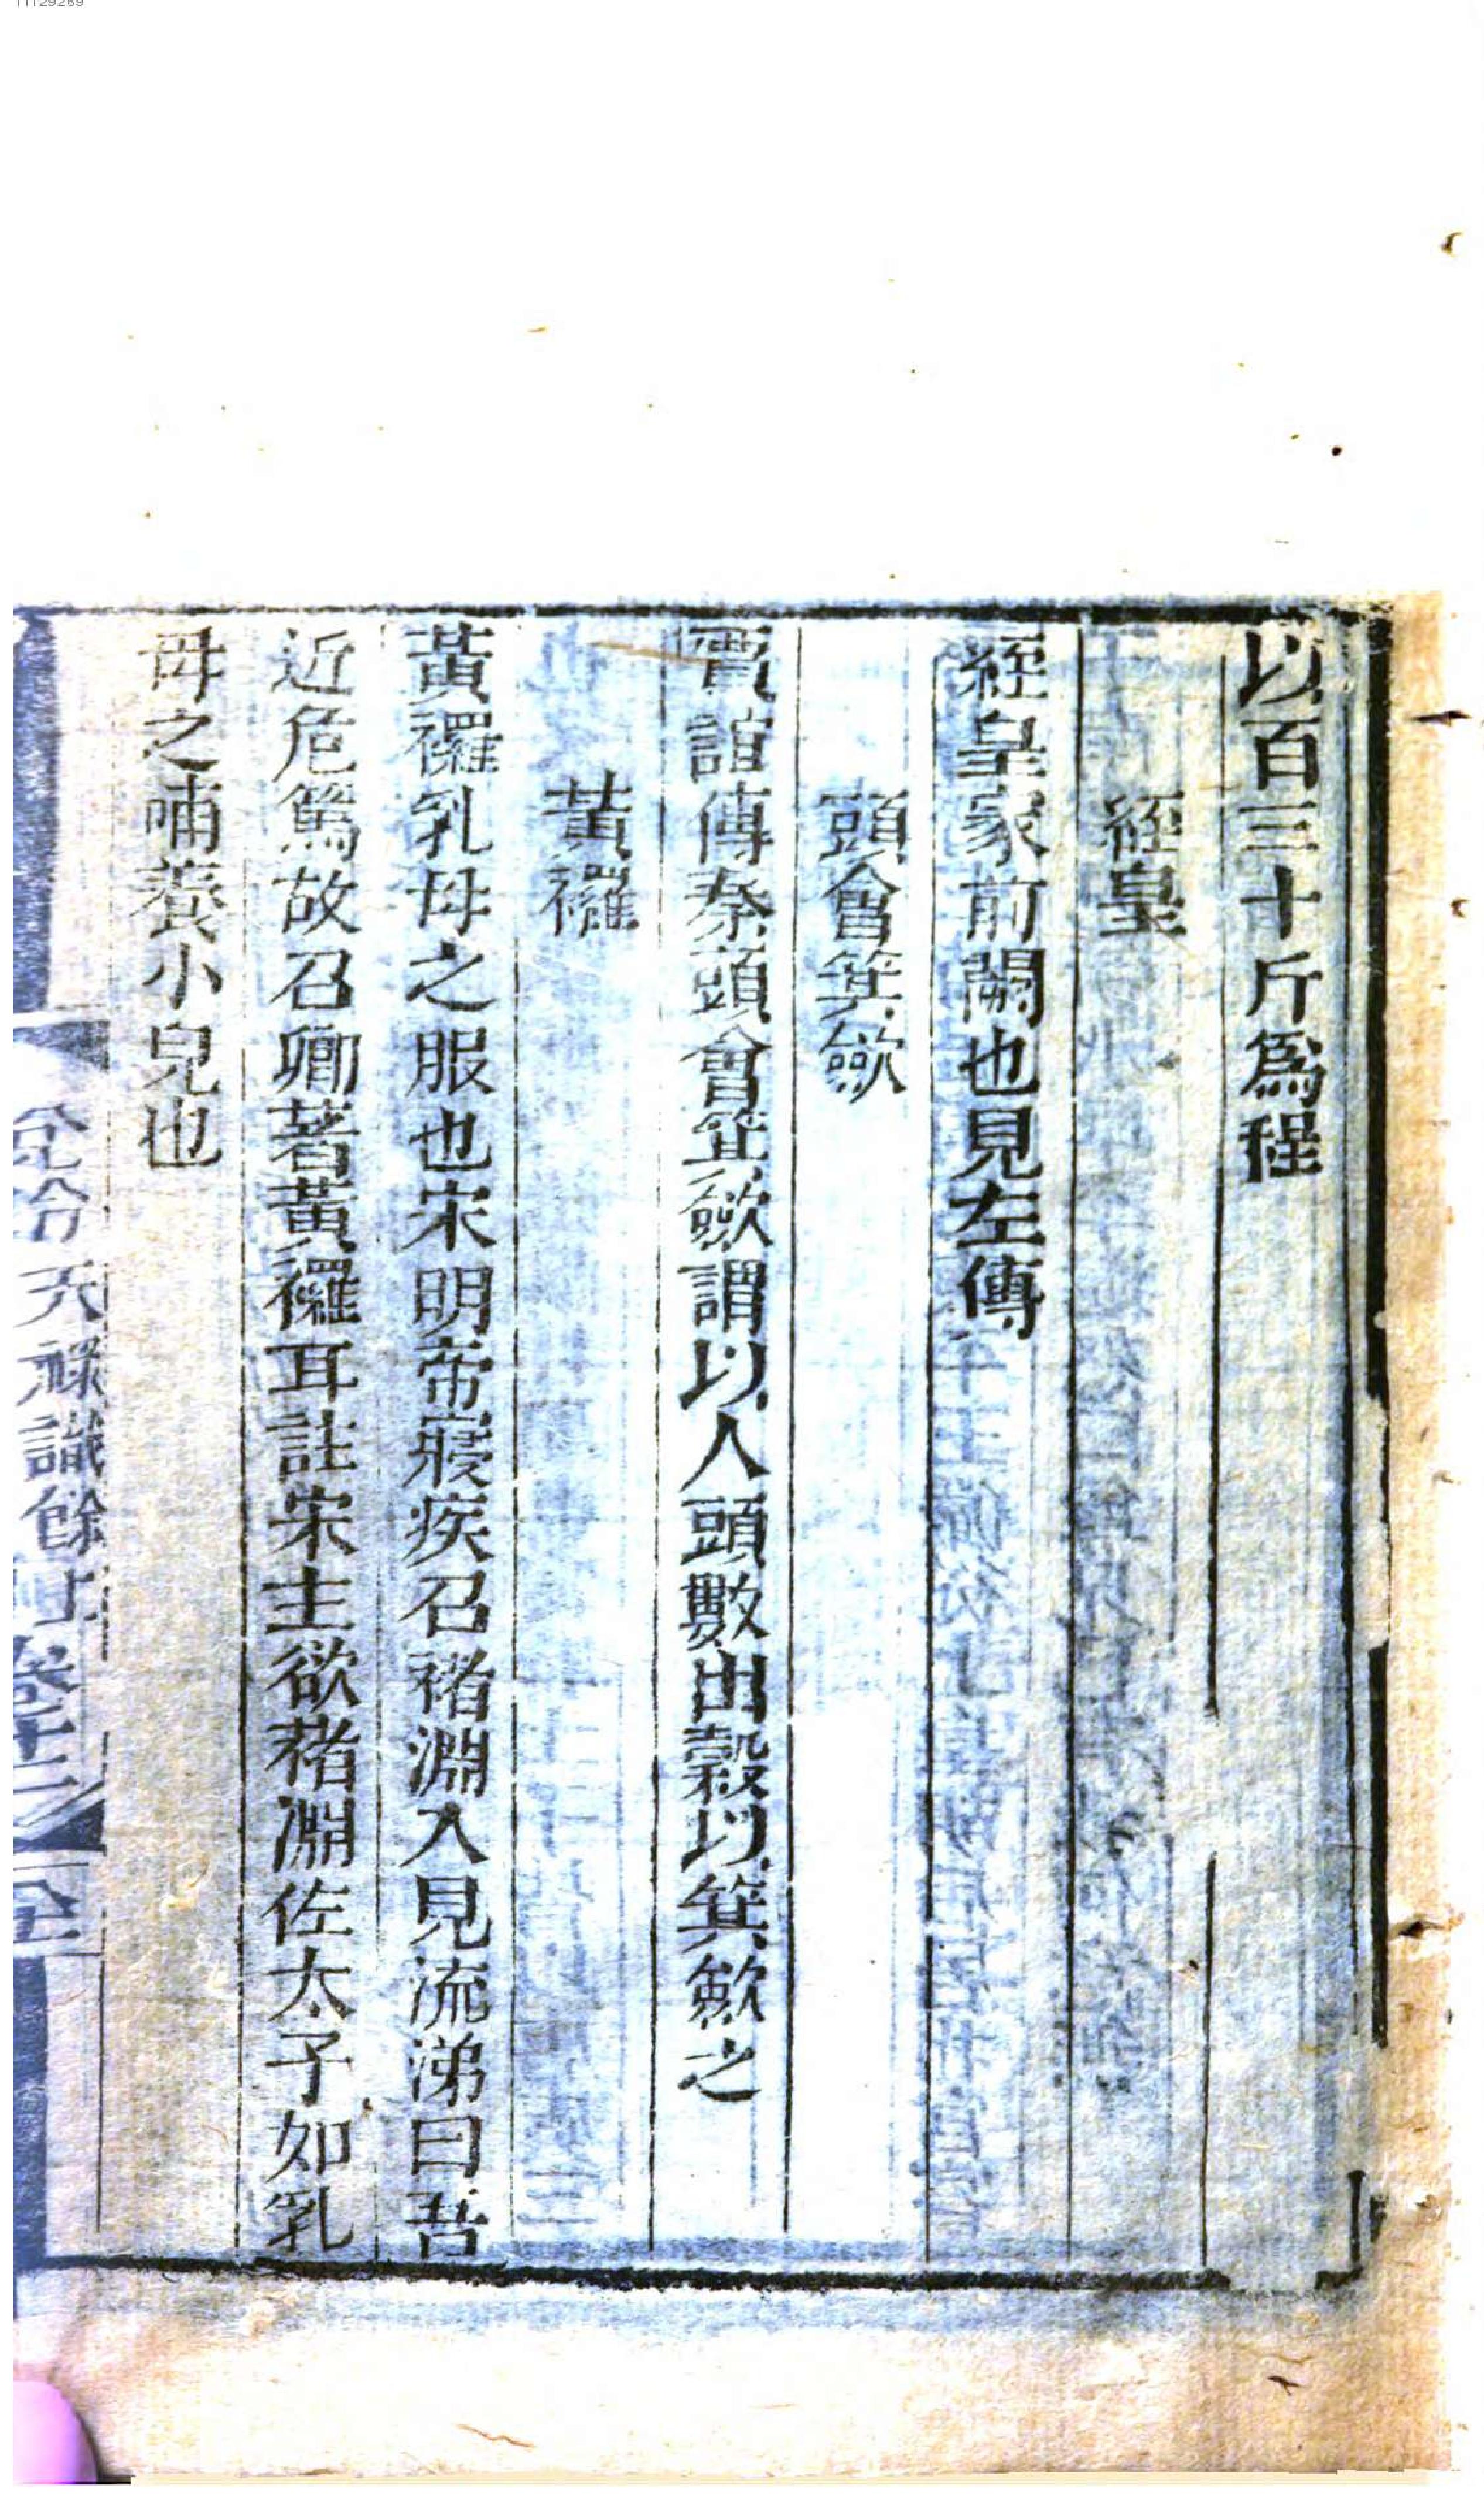 以百三十斤爲程
絰皇
絰皇冢前闕也見左傳
頭會箕斂
賈誼傳秦頭會箕斂謂以人頭數出穀以箕斂之
黃襬
黃襬乳母之服也宋明帝寢疾召褚淵入見流涕曰吾
近危篤故召卿著黃襬耳註宋主欲褚淵佐太子如乳
母之哺養小兒也
天祿識餘 卷十二